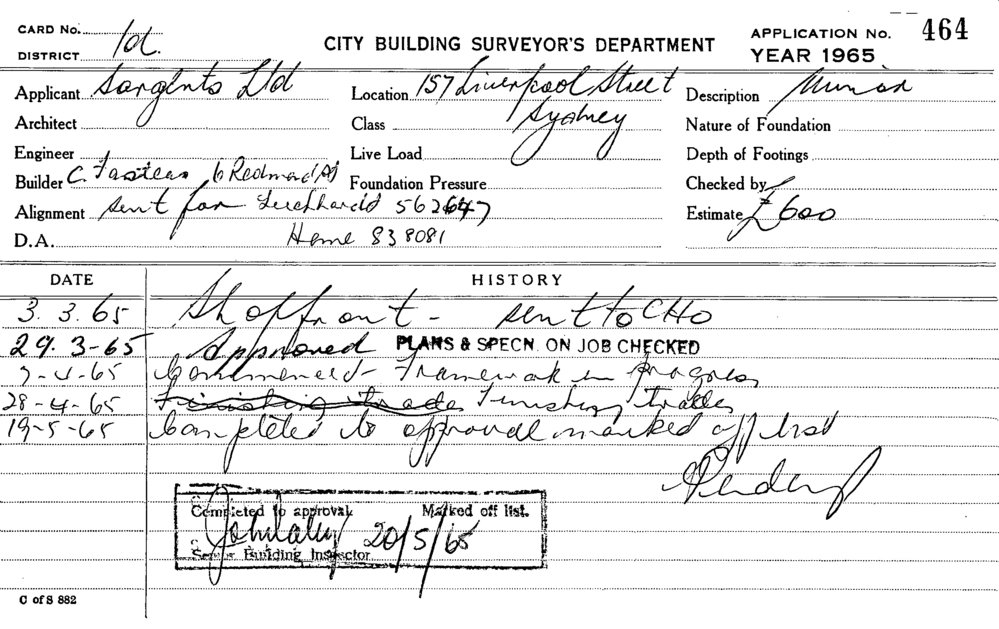 CARD No. 1d.
DISTRICT
CITY BUILDING SURVEYOR'S DEPARTMENT
APPLICATION No. 464
YEAR 1965
Applicant Sargents Ltd
Location 157 Liverpool Street
Sydney
Description Minor
Architect
Class
Nature of Foundation
Engineer
Live Load
Depth of Footings
Builder C. 6 Redmond St
Foundation Pressure
Checked by
Alignment sent for Leichhardt 562647
Estimate £600
D.A. Home 838081
DATE HISTORY
3. 3. 65 Shopfront - sent to CHO
29. 3-65 Approved PLANS & SPECN. ON JOB CHECKED
7-4-65 Commenced - Framework in progress
28-4-65 Finishing trades Finishing trades
19-5-65 Completed to approval marked off list
Completed to approval. Marked off list.
20/5/65
Senior Building Inspector
C of S 882